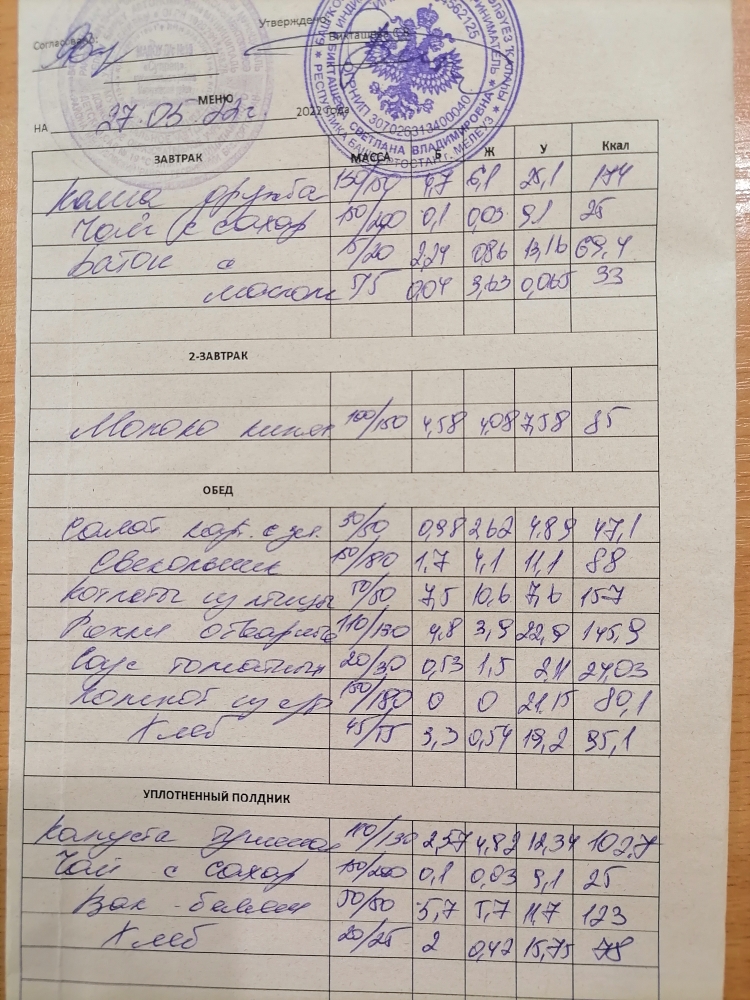 Согласовано:
Утверждено
Викташева С.В.
МЕНЮ
НА 27.05.22г. 2022 года
ЗАВТРАК МАССА Б Ж У Ккал
Каша дружба 130/150 4,7 6,1 25,1 174
Чай с сахар 150/200 0,1 0,03 9,1 25
Батон с 15/20 2,24 0,86 13,16 69,4
маслом 5/5 0,04 3,63 0,065 33
2-ЗАВТРАК
Молоко кипят 100/150 4,58 4,08 7,58 85
ОБЕД
Салат кар. с зел. 30/50 0,98 2,62 4,89 47,1
Свекольник 150/180 1,7 4,1 11,1 88
Котлеты из птицы 50/50 7,5 10,6 7,6 157
отварные 110/130 4,8 3,9 22,9 145,9
Соус томатный 20/30 0,53 1,5 2,11 24,03
Компот из с/ф 150/180 0 0 21,15 80,1
Хлеб 45/55 3,3 0,54 19,2 95,1
УПЛОТНЕННЫЙ ПОЛДНИК
Капуста тушеная 110/130 2,57 4,82 12,34 102,7
Чай с сахар 150/200 0,1 0,03 9,1 25
Вак - беляш 50/50 5,7 5,7 11,7 123
Хлеб 20/25 2 0,42 15,75 78